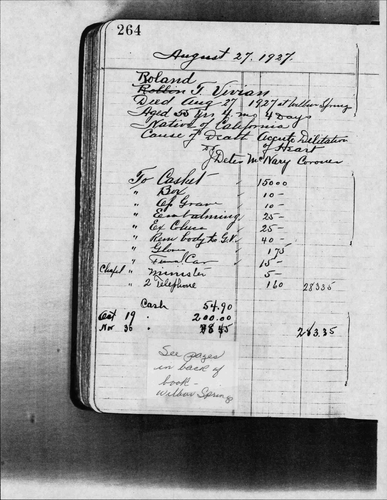 264
August 27, 1927.
Roland
Robbon T. Vivian
Died Aug 27 1927 at Wilbur Springs
Aged 55 yrs mo 4 Days
Native of California
Cause of Death Accute Dilitation
of Heart
Mc Nary Coroner
To Casket " 150 00
" Box " 10 -
" Op Grave " 10 -
" Embalming " 25 -
" Ex " 25 -
" Rem body to " 40 -
" Gloves " 1 75
" Car " 15 -
Chapel " Minister " 5 -
" 2 Telephone " 1 60 283 35
Cash 54.90
Oct 19 " 200.00
Nov 30 " 28 45 283.35
See pages
in back of
book -
Wilbur Springs